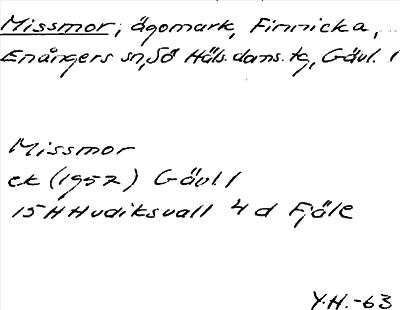 Missmor, ägomark, Finnicka,
Enångers sn, Sö Häls. doms. tg, Gävl. l
Missmor
ek (1957) Gävl l
15 H Hudiksvall 4 d Fjäle
Y.H. -63